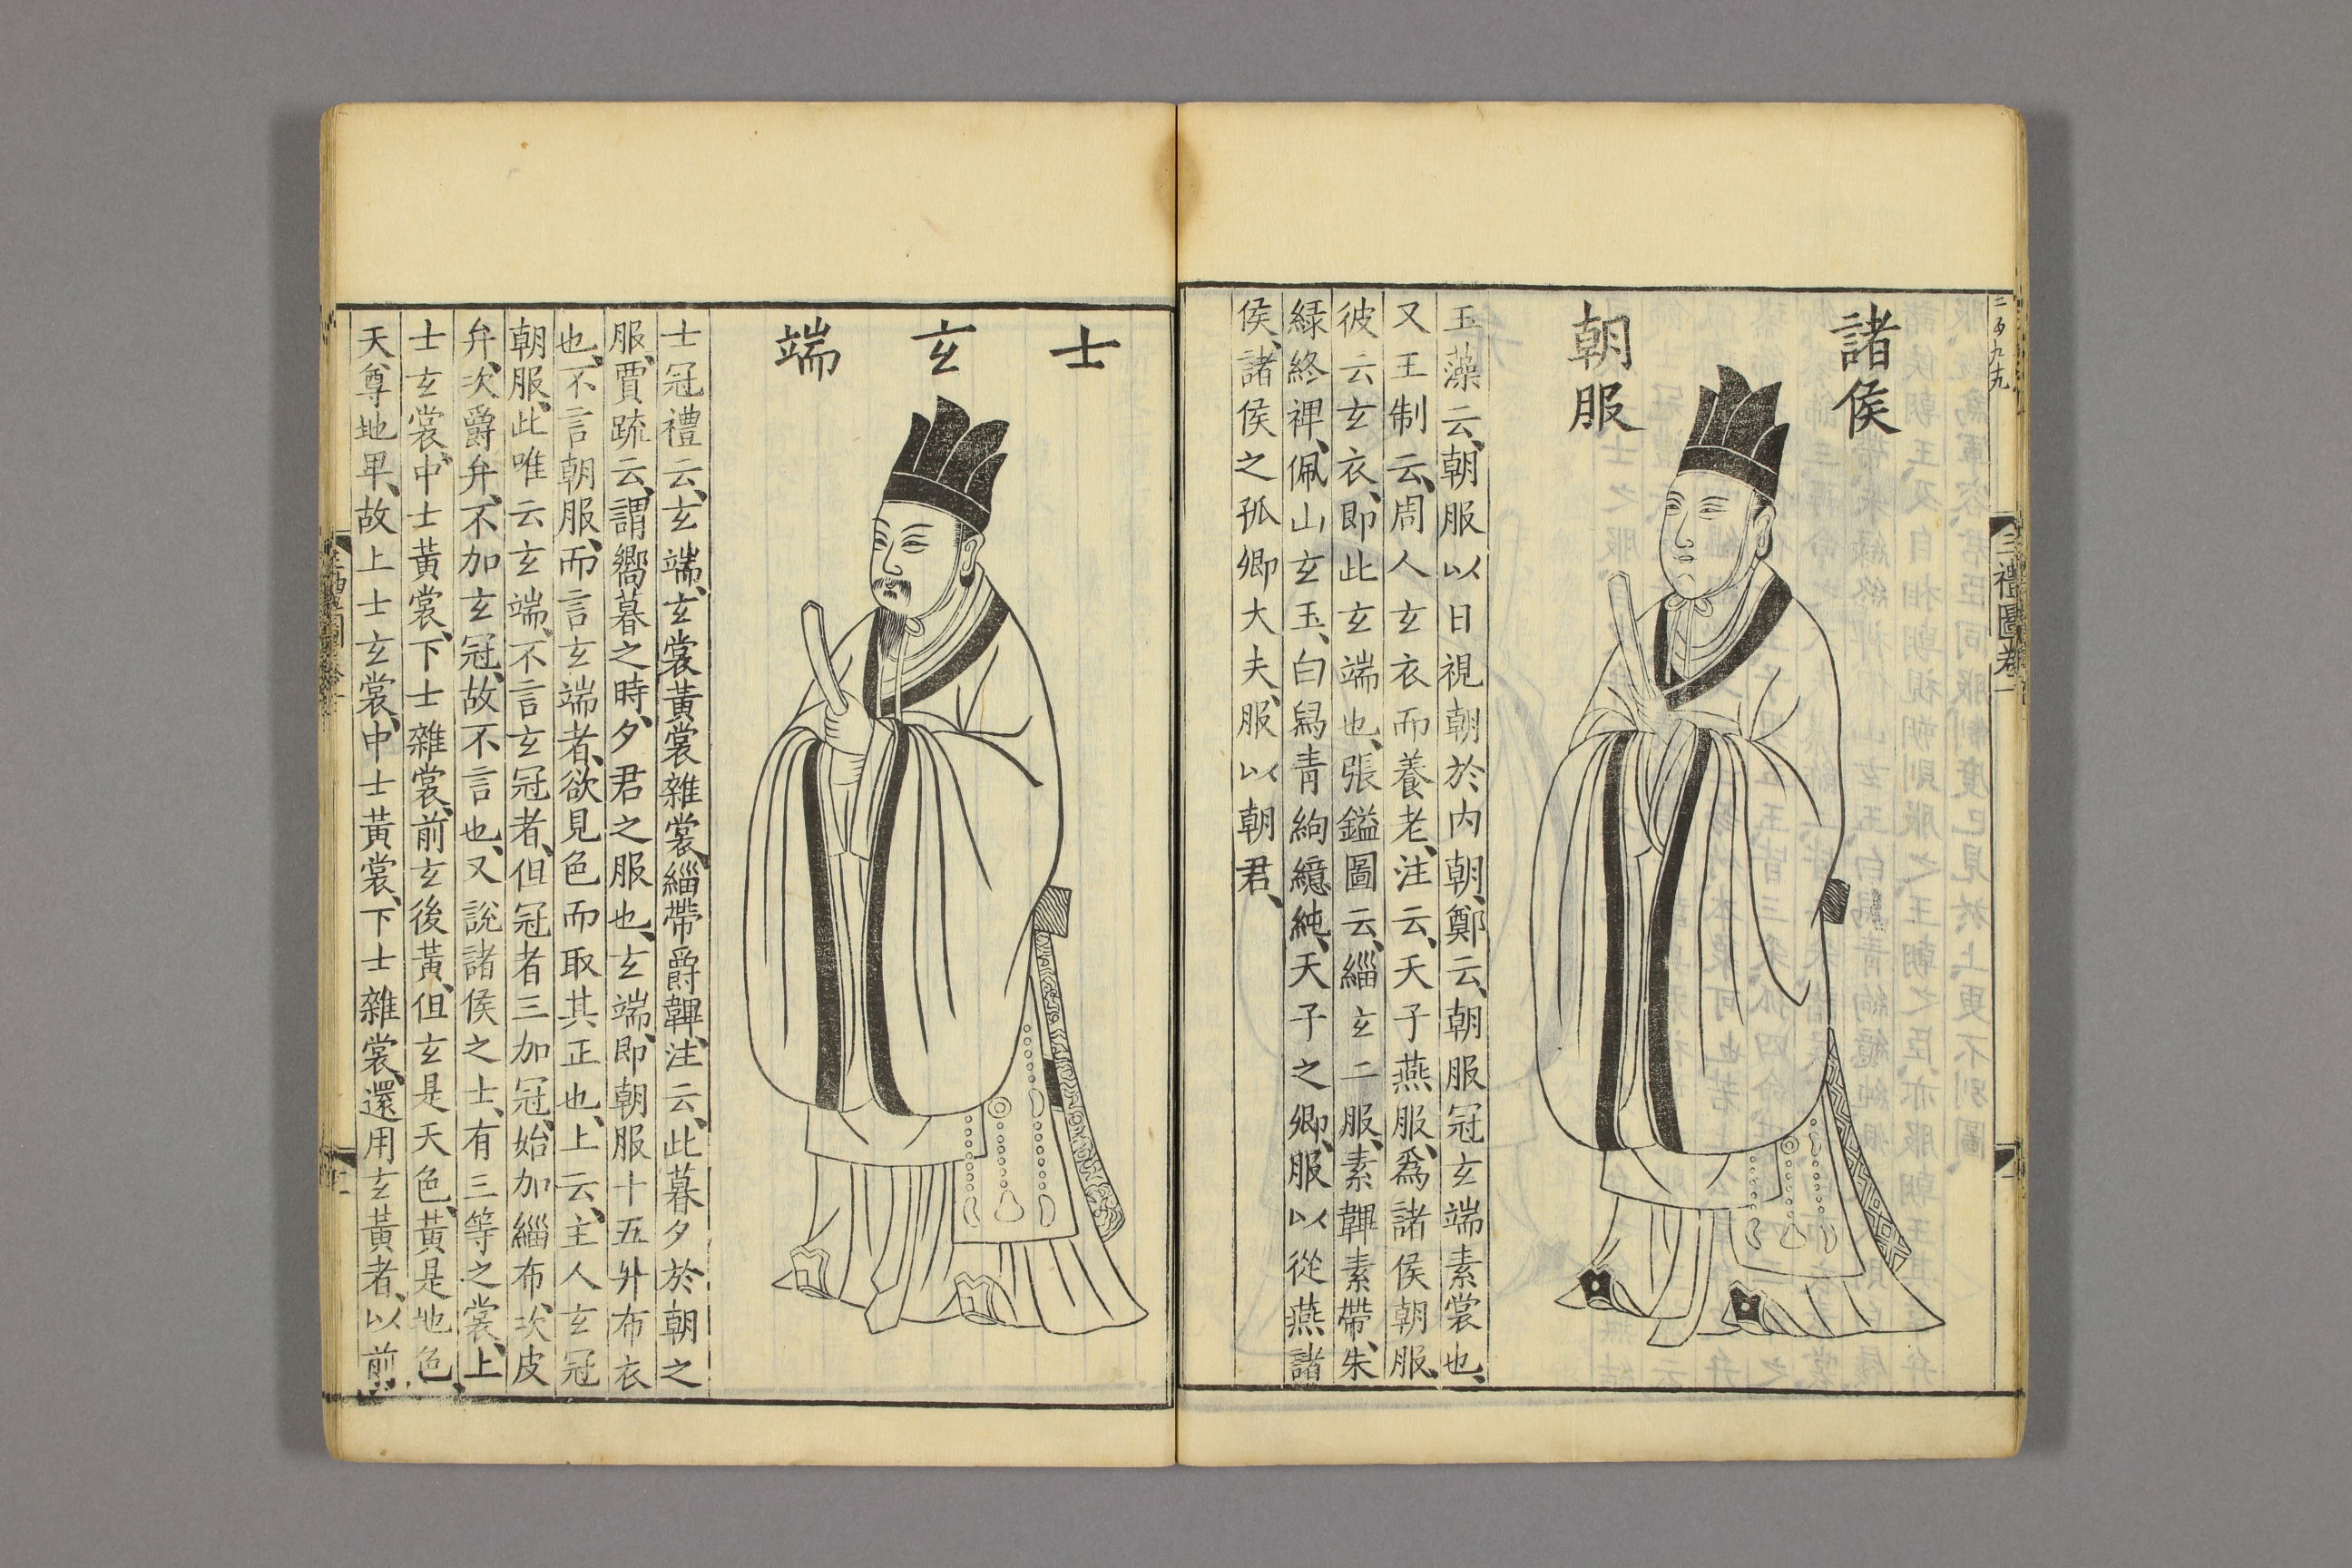 諸侯
朝服
玉藻云、朝服以日視朝於内朝、鄭云、朝服冠玄端素裳也、
又王制云、周人玄衣而養老、注云、天子燕服、爲諸侯朝服、
彼云玄衣、即此玄端也、張鎰圖云、緇玄二服、素韠素帶、朱
緑終裨、佩山玄玉、白舄青絇繶純、天子之卿、服以從燕諸
侯、諸侯之孤卿大夫、服以朝君、
三禮圖卷一
士玄端
士冠禮云、玄端、玄裳黃裳雜裳、緇帶爵韠、注云、此暮夕於朝之
服、賈疏云、謂嚮暮之時、夕君之服也、玄端、即朝服十五升布衣
也、不言朝服、而言玄端者、欲見色而取其正也、上云、主人玄冠
朝服、此唯云玄端、不言玄冠者、但冠者三加冠、始加緇布、次皮
弁、次爵弁、不加玄冠、故不言也、又說諸侯之士、有三等之裳、上
士玄裳、中士黃裳、下士雜裳、前玄後黃、但玄是天色、黃是地色、
天尊地卑、故上士玄裳、中士黃裳、下士雜裳、還用玄黃者、以前